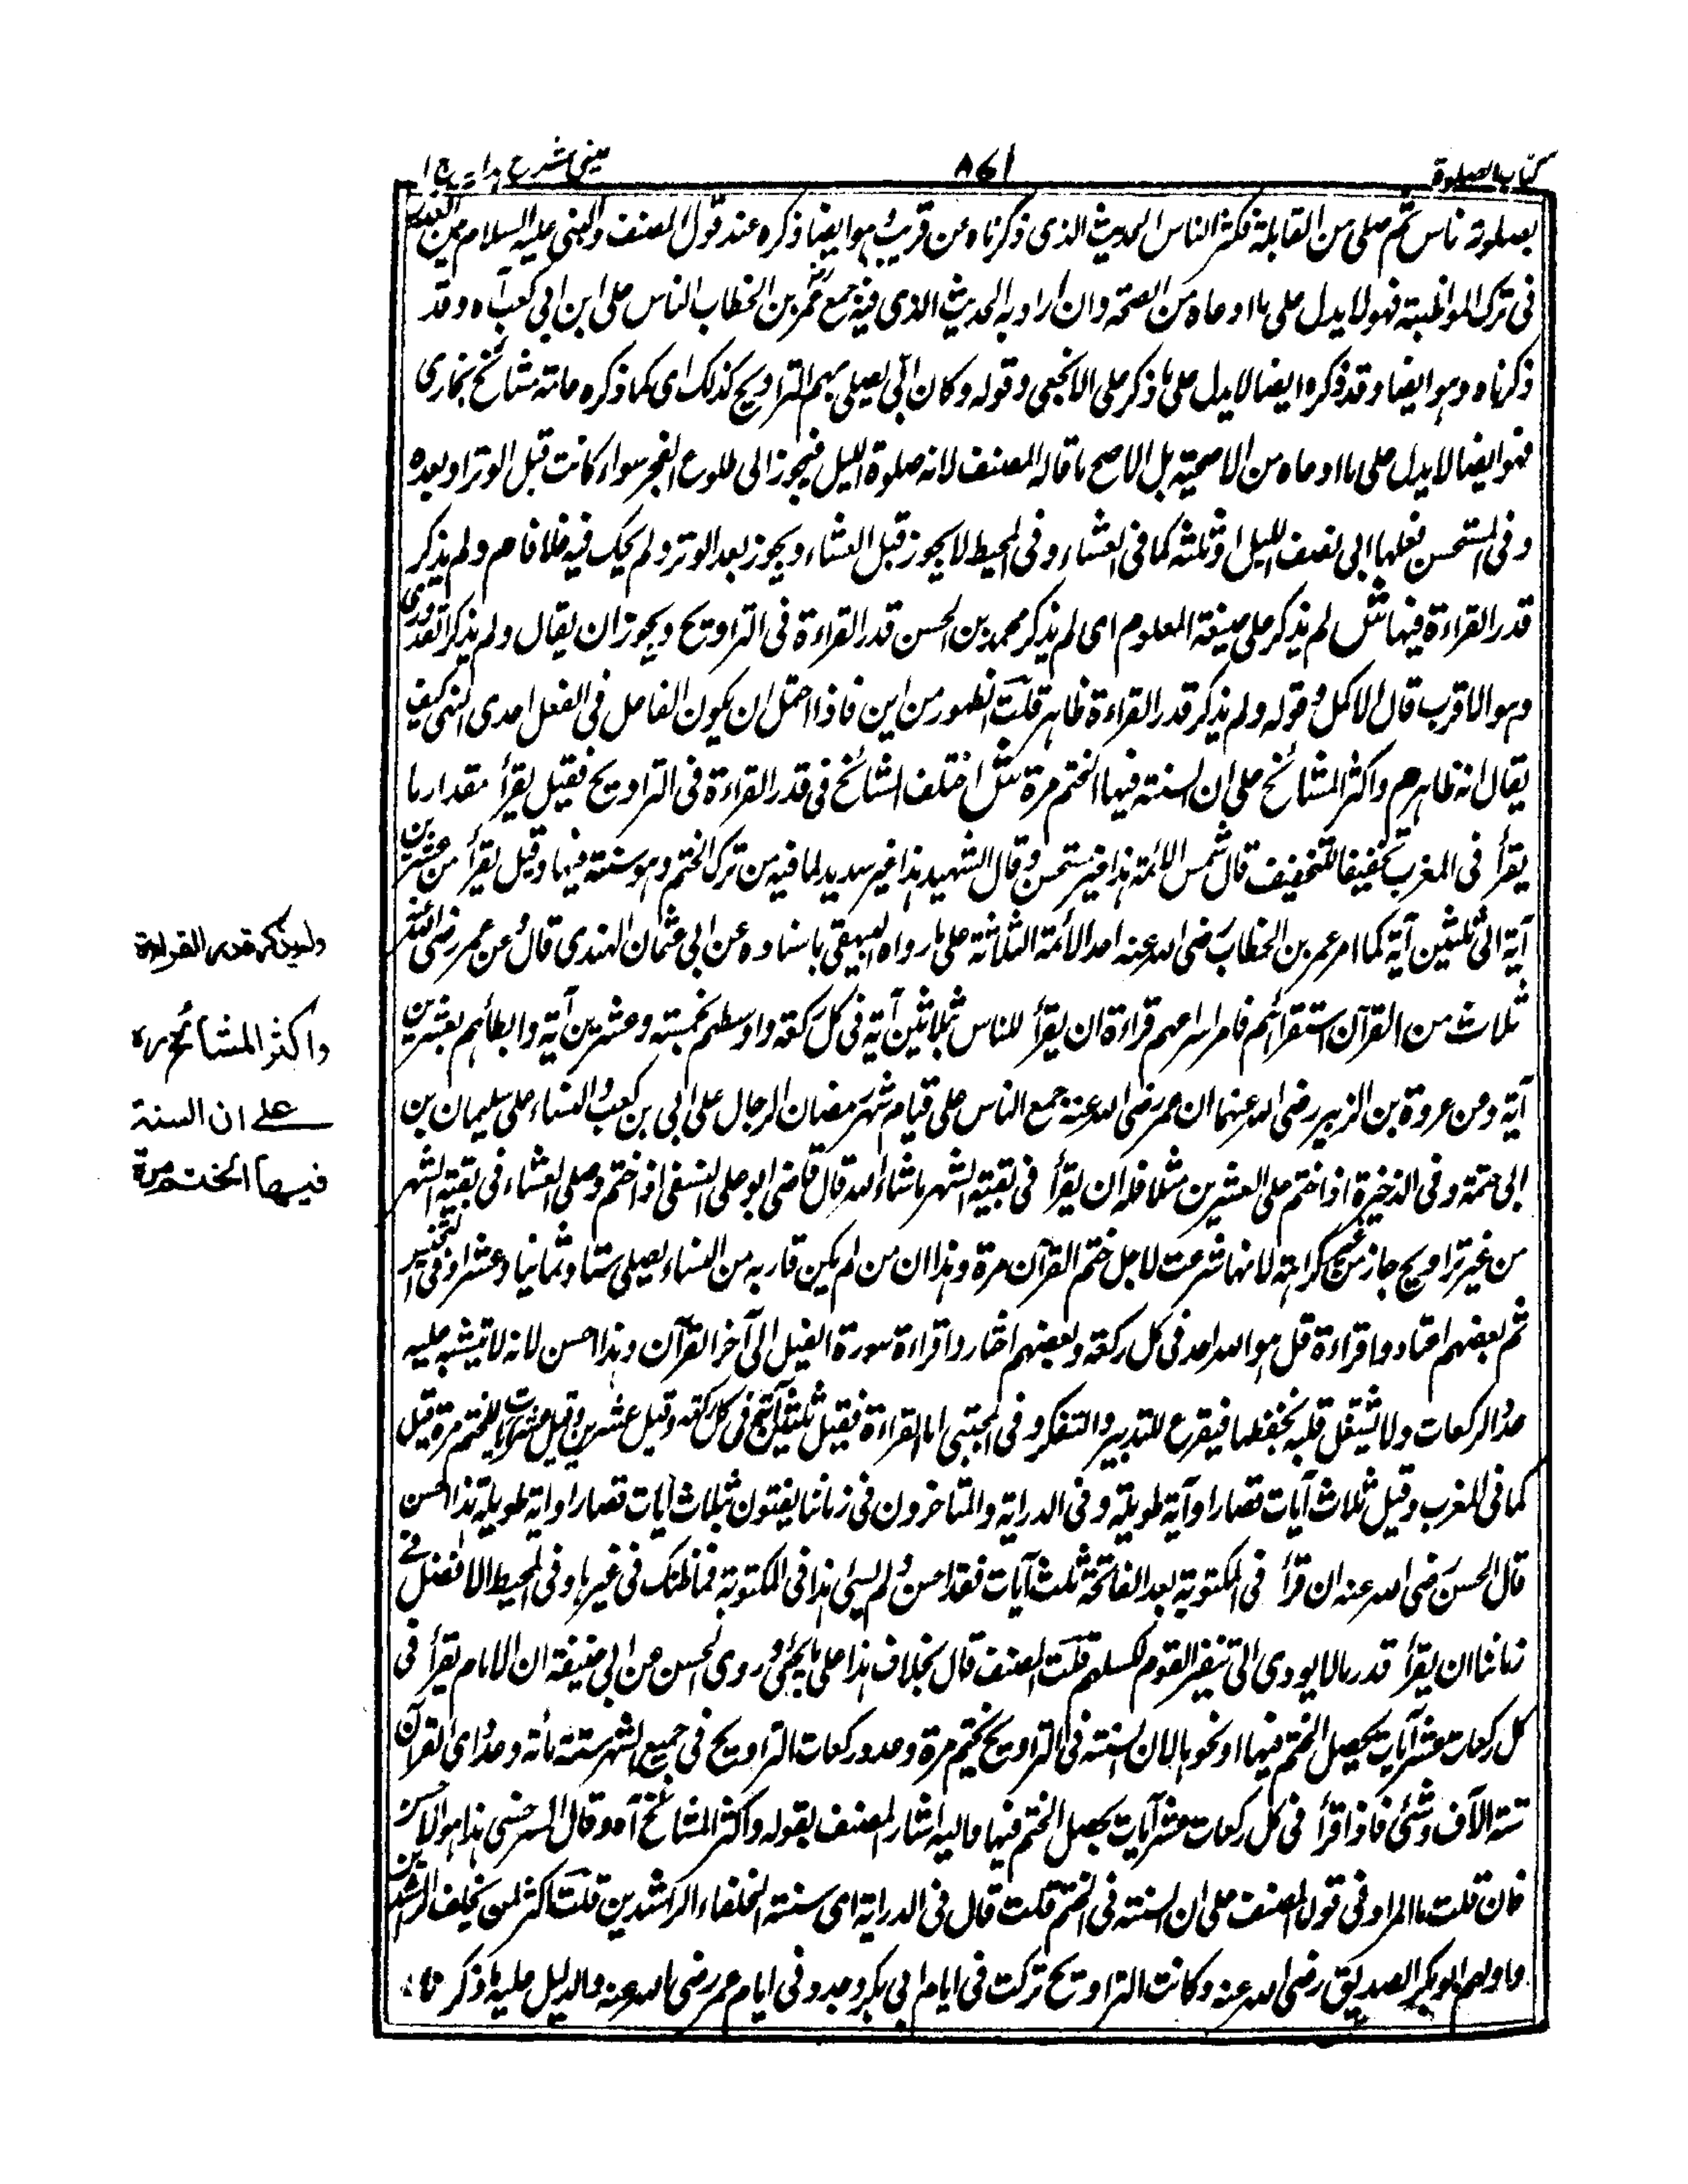 كتاب الصلوة
٨٦١
عينى شرح هدايه ج ١
بصلوته ناس ثم صلى من القابلة فكثر الناس الحديث الذى ذكرناه عن قريب وهو ايضا ذكره عند قول المصنف والنبى عليه السلام بين العذر
فى ترك المواظبة فهو لا يدل على ما ادعاه من الصحة وان اراد به الحديث الذى فيه جمع عمر بن الخطاب الناس على ابن ابى كعب آه وقد
ذكرناه وهو ايضا وقد ذكره ايضا لا يدل على ما ذكر على الانخفى وقوله وكان ابى يصلى بهم التراويح كذلك اى كما ذكره عامة مشائخ بخارى
فهو ايضا لا يدل على ما ادعاه من الاصحية بل الاصح ما قاله المصنف لانه صلوة الليل فيجوز الى طلوع الفجر سواء كانت قبل الوتر او بعده
وفى المستحسن فعلها الى نصف الليل او ثلثه كما فى العشاء وفى المحيط لا يجوز قبل العشاء ويجوز بعد الوتر ولم يحك فيه خلافا م ولم يذكر
قدر القراءة فيها ش لم يذكر على صيغة المعلوم اى لم يذكر محمد بن الحسن قدر القراءة فى التراويح ويجوز ان يقال ولم يذكر القدورى
وهو الاقرب قال الاكمل وقوله ولم يذكر قدر القراءة ظاهر قلت الظهور من اين فاذا احتمل ان يكون الفاعل فى الفعل احدى اثنى كيف
يقال انه ظاهر م واكثر المشائخ على ان السنة فيها الختم مرة ش اختلف المشائخ فى قدر القراءة فى التراويح فقيل يقرأ مقدار ما
يقرأ فى المغرب تخفيفا للتخفيف قال شمس الائمة هذا غير مستحسن وقال الشهيد هذا غير سديد لما فيه من ترك الختم وهو سنة فيها وقيل يقرأ من عشرين
آية الى ثلثين آية كما امر عمر بن الخطاب رضى الله عنه احد الأئمة الثلاثة على ما رواه البيهقى باسناده عن ابى عثمان الهندى قال عن عمر رضى الله عنه
ثلاث من القرآن استقرائهم فامر اسرعهم قراءة ان يقرأ للناس ثلاثين آية فى كل ركعة واوسطهم بخمسة وعشرين آية وابطأهم بعشرين
آية وعن عروة بن الزبير رضى الله عنهما ان عمر رضى الله عنه جمع الناس على قيام شهر رمضان الرجال على ابى بن كعب والنساء على سليمان بن
ابى حتمة وفى الذخيرة اذا ختم على العشرين مثلا فله ان يقرأ فى بقية الشهر ما شاء الله قال قاضى ابو على النسفى اذا ختم وصلى العشاء فى بقية الشهر
من غير تراويح جاز من غير كراهة لانها شرعت لاجل ختم القرآن مرة وهذا ان من لم يكن قاريه من النساء يصلى ستا وثمانيا وعشرا وفى التجنيس
ثم بعضهم اعتادوا قراءة قل هو الله احد فى كل ركعة وبعضهم اختاروا قراءة سورة الفيل الى آخر القرآن وهذا حسن لانه لا يشتبه عليه
عدد الركعات ولا يشتغل قلبه بحفظها فيفرغ للتدبير والتفكر وفى المجتبى اما القراءة فقيل ثلثين آية فى كل ركعة وقيل عشرين وقيل عشر آيات للختم مرة قيل
كما فى المغرب وقيل ثلاث آيات قصار او آية طويلة وفى الدراية والمتاخرون فى زماننا يفتون بثلاث ايات قصار او اية طويلة هذا احسن
قال الحسن رضى الله عنه ان قرأ فى المكتوبة بعد الفاتحة ثلث آيات فقد احسن ولم يسئ هذا فى المكتوبة فما ظنك فى غيرها وفى المحيط الافضل فى
زماننا ان يقرأ قدر ما لا يودى الى تنفير القوم لكسلهم قلت المصنف قال بخلاف هذا على ما يجئ وروى الحسن عن ابى حنيفة ان الامام يقرأ فى
كل ركعات عشر آيات يحصل الختم فيها او نحوها لان السنة فى التراويح ختم مرة وعدد ركعات التراويح فى جميع الشهر ستة مائة وعدد اى القرآن
ستة الآف وشئ فاذا قرأ فى كل ركعات عشر آيات يحصل الختم فيها واليه اشار المصنف بقوله واكثر المشائخ آه وقال السرخسى هذا هو الاحسن
فان قلت ما المراد فى قول المصنف على ان السنة فى الختم قلت قال فى الدراية اى سنة الخلفاء الراشدين قلت اكثر لمن يخلف الراشدين
واولهم ابو بكر الصديق رضى الله عنه وكانت التراويح تركت فى ايام ابى بكر وجدد فى ايام عمر رضى الله عنه والدليل عليه ما ذكرنا
ولم يذكر قدر القراءة
واكثر المشائخ رح
على ان السنة
فيها الختم مرة